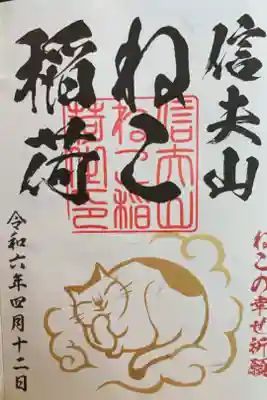 信夫山
ねこ
稲荷
信夫山
ねこ稲
荷神社
ねこの幸せ祈願
令和六年四月十二日